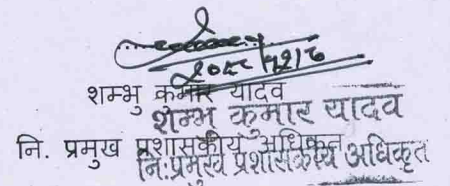 २०८८/१२/६
शम्भु कुमार यादव
शम्भु कुमार यादव
नि. प्रमुख प्रशासकीय अधिकृत
नि.प्रमुख प्रशासकीय अधिकृत